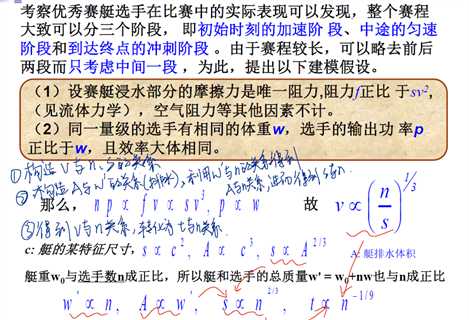 考察优秀赛艇选手在比赛中的实际表现可以发现，整个赛程
大致可以分三个阶段， 即初始时刻的加速阶 段、中途的匀速
阶段和到达终点的冲刺阶段 。由于赛程较长，可以略去前后
两段而只考虑中间一段 ，为此，提出以下建模假设。
（1）设赛艇浸水部分的摩擦力是唯一阻力,阻力f正比 于sv²,
（见流体力学），空气阻力等其他因素不计。
（2）同一量级的选手有相同的体重w，选手的输出功 率p
正比于w，且效率大体相同。
①构造 V与n、S的关系
②构造A与w'的关系(排水), 利用w'与n的关系得到
A与n关系,进而得到s与n.
那么， n p ∝ f v ∝ s v³, p ∝ w 故 v ∝ (n/s)^1/3
③得到V与n关系, 转化为t与n关系.
c: 艇的某特征尺寸, s ∝ c², A ∝ c³, s ∝ A^2/3 A: 艇排水体积
艇重w₀与选手数n成正比，所以艇和选手的总质量w' = w₀+nw也与n成正比
w' ∝ n, A ∝ w', s ∝ n^2/3, t ∝ n^-1/9